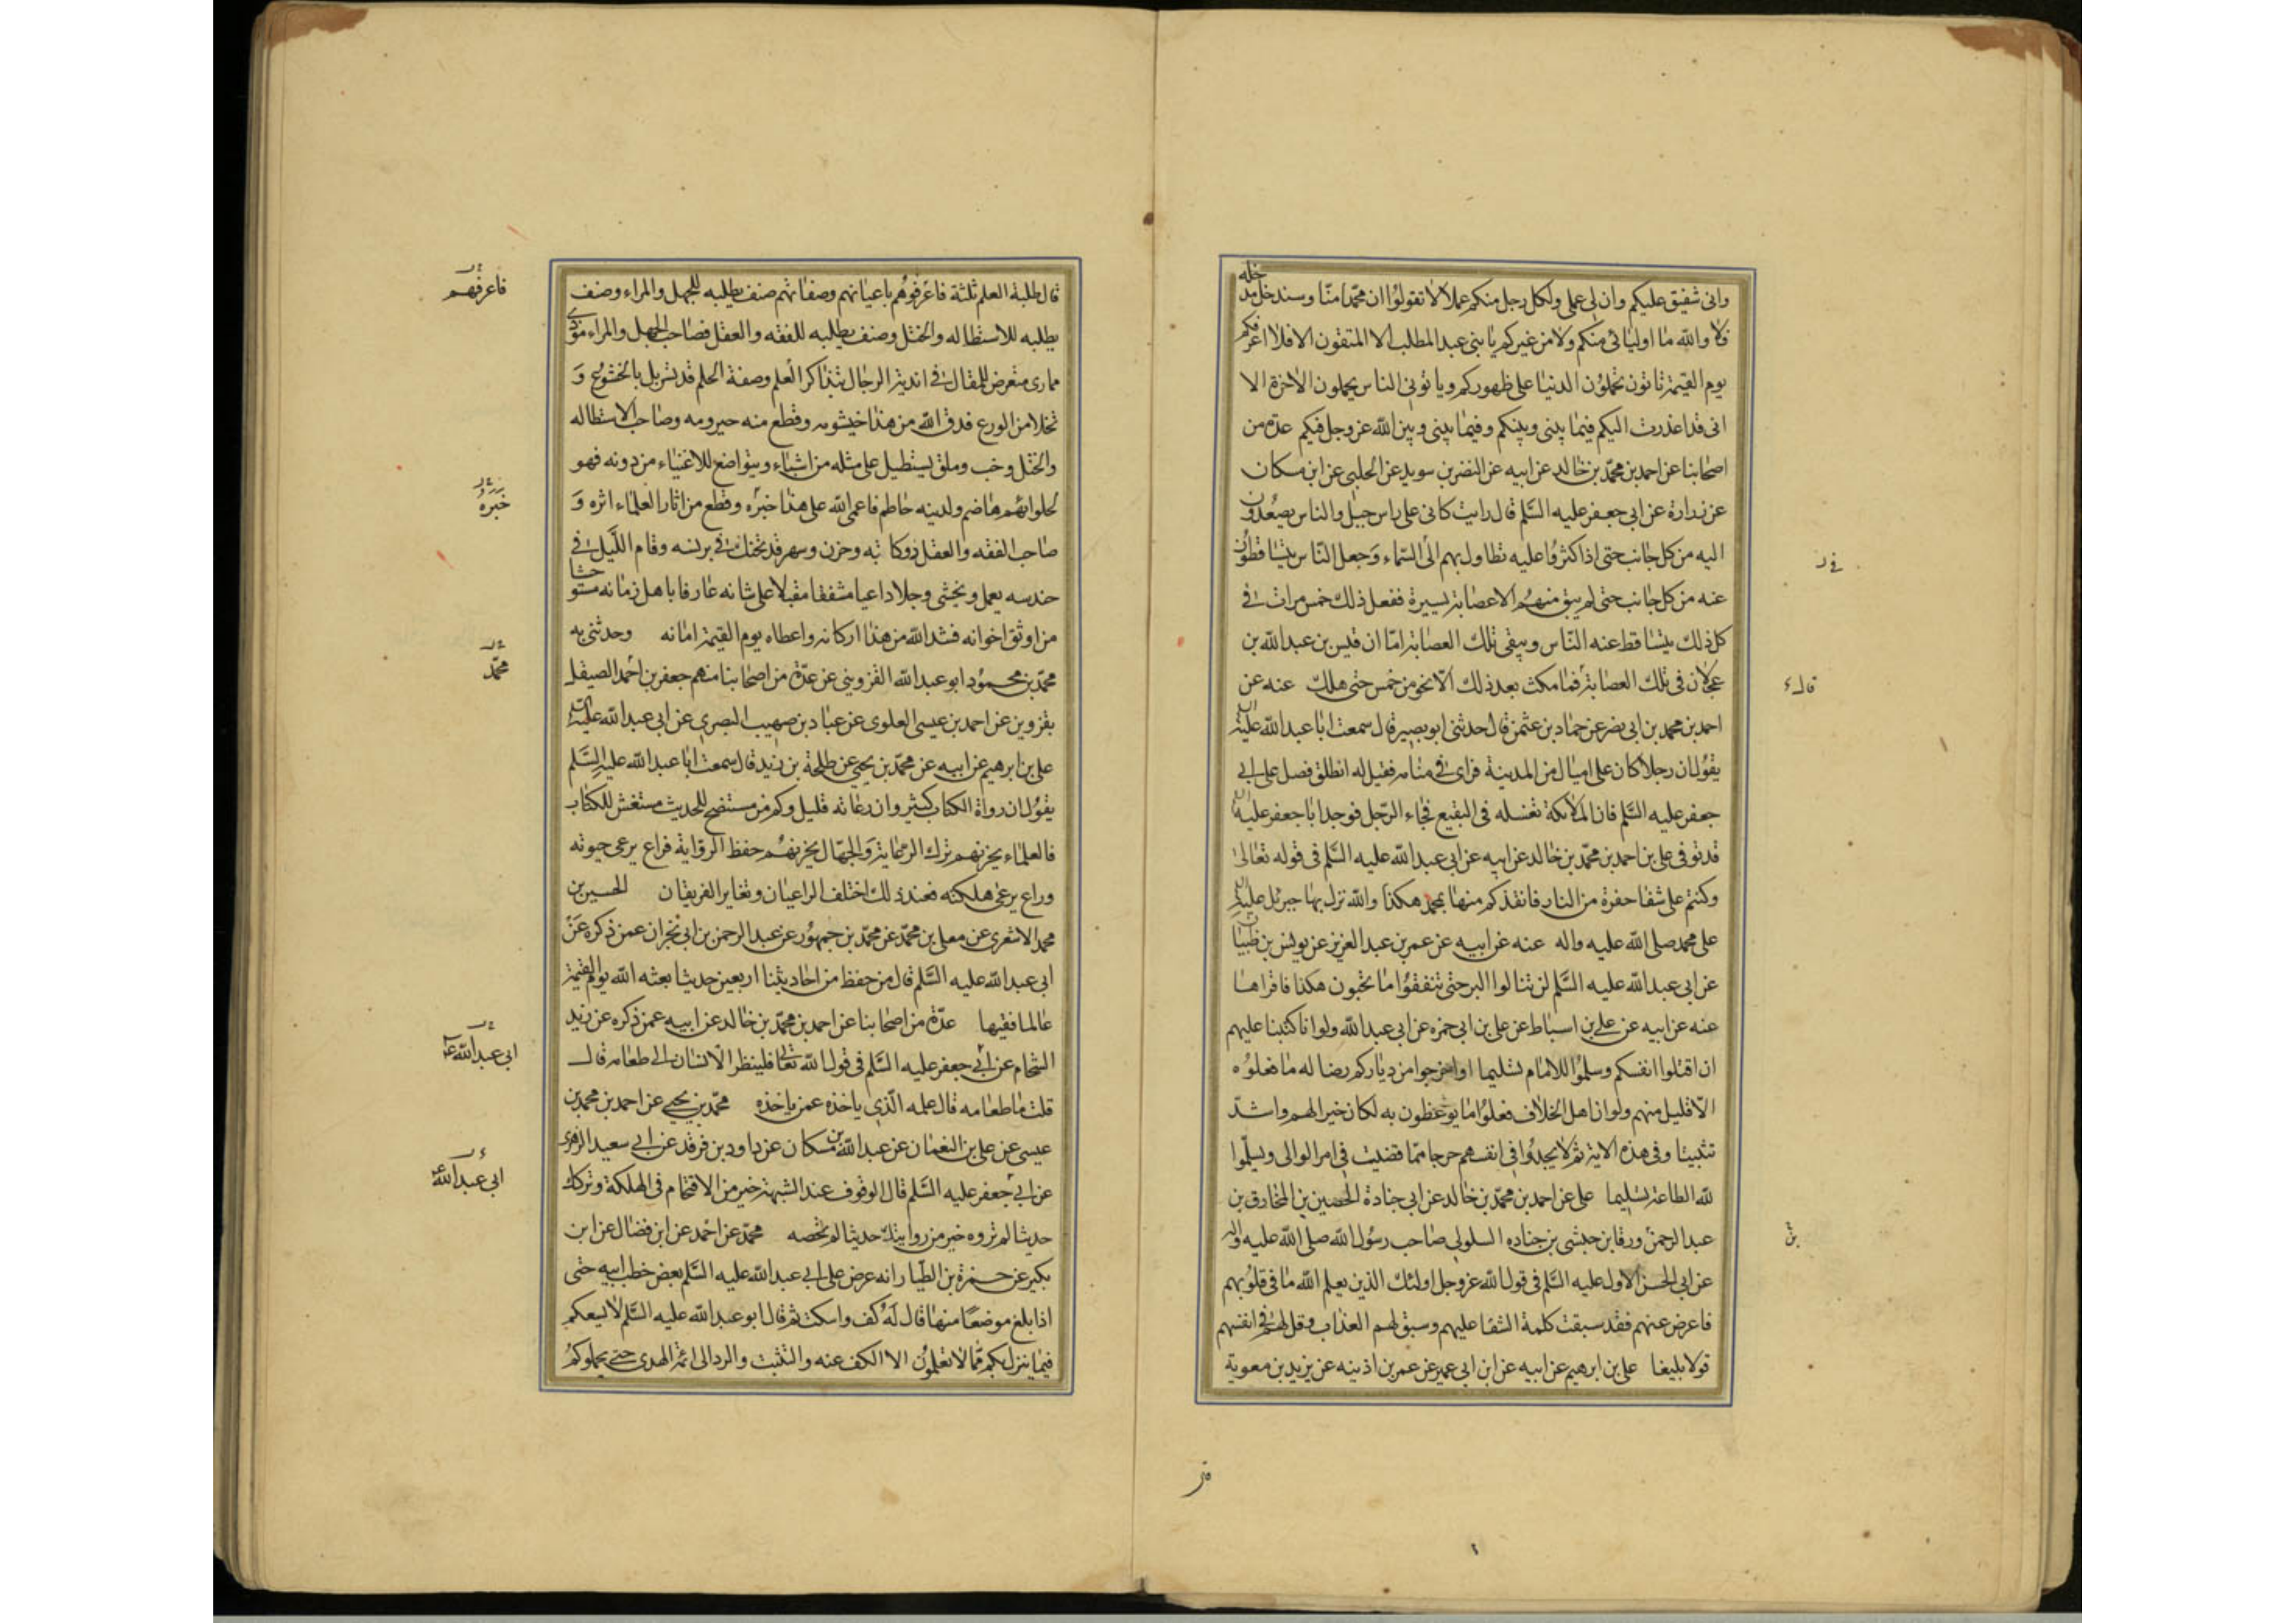 وانی شفیق علیکم وان لی عملی ولکل رجل منکم عمله لا تقولوا ان محمدا منا وسندخل مدخله
فلا والله ما اولیائی منکم ولا من غیرکم یا بنی عبد المطلب الا المتقون الا فلا اعرفکم
یوم القیمة تاتون تحملون الدنیا علی ظهورکم ویاتونی الناس یحملون الاخرة الا
انی قد اعذرت الیکم فیما بینی وبینکم وفیما بینی وبین الله عز وجل فیکم عدة من
اصحابنا عن احمد بن محمد بن خالد عن ابیه عن النضر بن سوید عن الحلبی عن ابن مسکان
عن زرارة عن ابی جعفر علیه السلم قال رایت کانی علی راس جبل والناس یصعدون
الیه من کل جانب حتی اذا کثروا علیه تطاول بهم الی السماء وجعل الناس یتساقطون
عنه من کل جانب حتی لم یبق منهم الا عصابة یسیرة ففعل ذلک خمس مرات فی
کل ذلک یتساقط عنه الناس ویبقی تلک العصابة اما ان قیس بن عبد الله بن
عجلان فی تلک العصابة فما مکث بعد ذلک الا نحو من خمس حتی هلک عنه عن
احمد بن محمد بن ابی نصر عن حماد بن عثمن قال حدثنی ابو بصیر قال سمعت ابا عبد الله علیه
یقول ان رجلا کان علی امیال من المدینة فرای فی منامه فقیل له انطلق فصل علی ابی
جعفر علیه السلم فان الملائکة تغسله فی البقیع فجاء الرجل فوجد ابا جعفر علیه
قد توفی علی بن احمد بن محمد بن خالد عن ابیه عن ابی عبد الله علیه السلم فی قوله تعالی
وکنتم علی شفا حفرة من النار فانقذکم منها بمحمد هکذا والله نزل بها جبرئل علیه
علی محمد صلی الله علیه واله عنه عن ابیه عن عمر بن عبد العزیز عن یونس بن ظبیان
عن ابی عبد الله علیه السلم لن تنالوا البر حتی تنفقوا ما تحبون هکذا فاقراها
عنه عن ابیه عن علی بن اسباط عن علی بن ابی حمزه عن ابی عبد الله ولو انا کتبنا علیهم
ان اقتلوا انفسکم وسلموا للامام تسلیما او اخرجوا من دیارکم رضا له ما فعلوه
الا قلیل منهم ولو ان اهل الخلاف فعلوا ما یوعظون به لکان خیرا لهم واشد
تثبیتا وفی هذه الایة ثم لا یجدوا فی انفسهم حرجا مما قضیت فی امر الوالی ویسلموا
لله الطاعة تسلیما علی عن احمد بن محمد بن خالد عن ابی جنادة الحصین بن المخارق بن
عبد الرحمن ورقا بن حبشی بن جناده السلولی صاحب رسول الله صلی الله علیه واله
عن ابی الحسن الاول علیه السلم فی قول الله عز وجل اولئک الذین یعلم الله ما فی قلوبهم
فاعرض عنهم فقد سبقت کلمة الشقا علیهم وسبق لهم العذاب وقل لهم فی انفسهم
قولا بلیغا علی بن ابرهیم عن ابیه عن ابن ابی عمیر عن عمر بن اذینه عن یزید بن معویة
فی
قال
بن
قال طلبة العلم ثلثة فاعرفوهم باعیانهم وصفاتهم صنف یطلبه للجهل والمراء وصنف
یطلبه للاستطاله والختل وصنف یطلبه للفقه والعقل فصاحب الجهل والمراء موذی
مماری متعرض للمقال فی اندیة الرجال بتذاکر العلم وصفة الحلم قد تسربل بالخشوع و
تخلا من الورع فدق الله من هذا خیشومه وقطع منه حیزومه وصاحب الاستطاله
والختل وخب وملق یستطیل علی مثله من اشباه ویتواضع للاغنیاء من دونه فهو
لحلوائهم هاضم ولدینه حاطم فاعمی الله علی هذا خبره وقطع من اثار العلماء اثره و
صاحب الفقه والعقل ذو کابه وحزن وسهر قد تحنک فی برنسه وقام اللیل فی
حندسه یعمل ویخشی وجلا داعیا مشفقا مقبلا علی شانه عارفا باهل زمانه مستوحشا
من اوثق اخوانه فشد الله من هذا ارکانه واعطاه یوم القیمة امانه وحدثنی به
محمد بن محمود ابو عبد الله القزوینی عن عدة من اصحابنا منهم جعفر بن احمد الصیقل
بقزوین عن احمد بن عیسی العلوی عن عباد بن صهیب البصری عن ابی عبد الله علیه السلم
علی بن ابرهیم عن ابیه عن محمد بن یحیی عن طلحة بن زید قال سمعت ابا عبد الله علیه السلم
یقول ان رواة الکتاب کثیر وان رعاته قلیل وکم من مستنصح للحدیث مستغش للکتاب
فالعلماء یحزنهم ترک الرعایة والجهال یحزنهم حفظ الروایة فراع یرعی حیوته
وراع یرعی هلکته فعند ذلک اختلف الراعیان وتغایر الفریقان الحسین بن
محمد الاشعری عن معلی بن محمد عن محمد بن جمهور عن عبد الرحمن بن ابی نجران عمن ذکره عن
ابی عبد الله علیه السلم قال من حفظ من احادیثنا اربعین حدیثا بعثه الله یوم القیمة
عالما فقیها عدة من اصحابنا عن احمد بن محمد بن خالد عن ابیه عمن ذکره عن زید
الشحام عن ابی جعفر علیه السلم فی قول الله تعالی فلینظر الانسان الی طعامه قال
قلت ما طعامه قال علمه الذی یاخذه عمن یاخذه محمد بن یحیی عن احمد بن محمد بن
عیسی عن علی بن النعمان عن عبد الله بن مسکان عن داود بن فرقد عن ابی سعید الزهری
عن ابی جعفر علیه السلم قال الوقوف عند الشبهة خیر من الاقتحام فی الهلکة وترکک
حدیثا لم تروه خیر من روایتک حدیثا لم تحصه محمد عن احمد عن ابن فضال عن ابن
بکیر عن حمزة بن الطیار انه عرض علی ابی عبد الله علیه السلم بعض خطب ابیه حتی
اذا بلغ موضعا منها قال له کف واسکت ثم قال ابو عبد الله علیه السلم لا یسعکم
فیما ینزل بکم مما لا تعلمون الا الکف عنه والتثبت والرد الی ائمة الهدی حتی یحملوکم
فاعرفهم
خبره
محمد
ابی عبد الله
ابی عبد الله